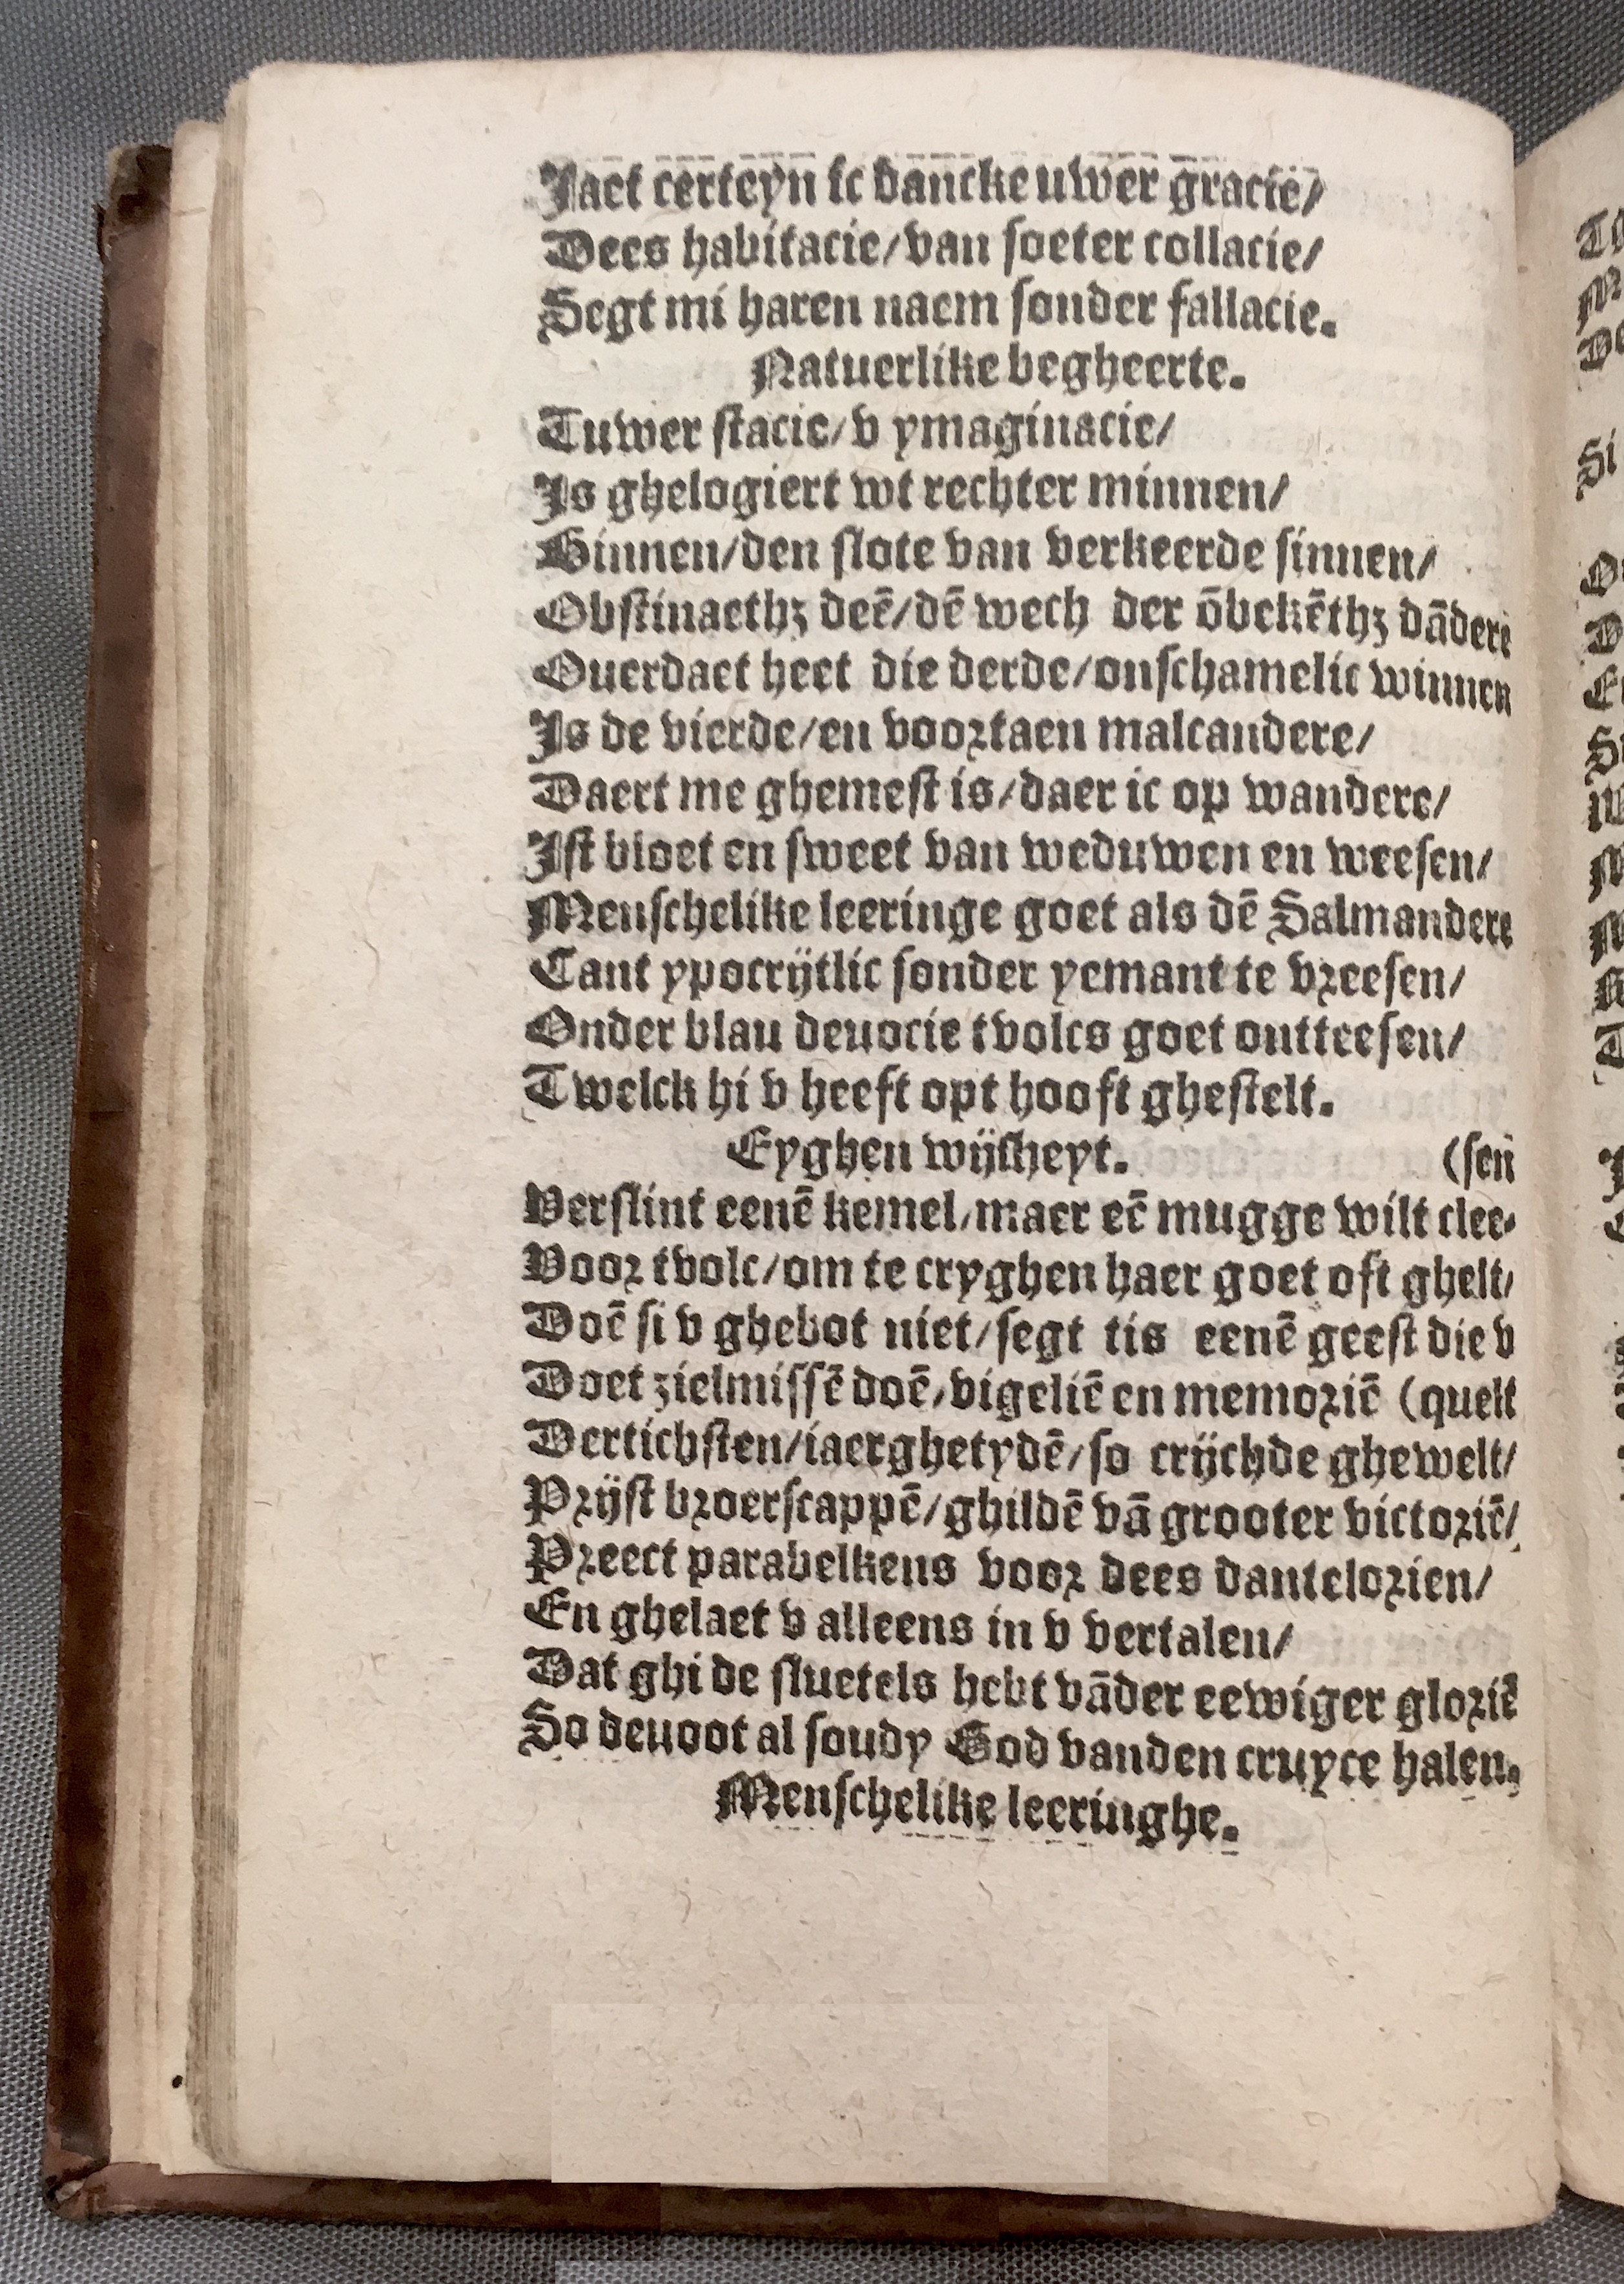 Jaet certeyn ic dancke uwer gracie/
Dees habitacie/van soeter collacie/
Segt mi haren naem sonder fallacie.
Natuerlike begheerte.
Tuwer stacie/v ymaginacie/
Is ghelogiert wt rechter minnen/
Binnen/den slote van verkeerde sinnen/
Obstinaethz deē/dē wech der ōbekēthz dādere
Ouerdaet heet die derde/onschamelic winnen
Is de vierde/en voortaen malcandere/
Daert me ghemest is/daer ic op wandere/
Ist bloet en sweet van weduwen en weesen/
Menschelike leeringe goet als dē Salmandere
Cant ypocrijtlic sonder yemant te vreesen/
Onder blau deuocie tvolcs goet ontteesen/
Twelck hi v heeft opt hooft ghestelt.
Eyghen wijsheyt. (sen
Verslint eenē kemel/maer eē mugge wilt clee-
Voor tvolc/om te cryghen haer goet oft ghelt/
Doē si v ghebot niet/segt tis eenē geest die v
Doet zielmissē doē/vigeliē en memoriē (quelt
Dertichsten/iaerghetydē/so crijchde ghewelt/
Prijst broerscappē/ghildē vā grooter victoriē/
Preect parabelkens voor dees dantelorien/
En ghelaet v alleens in v vertalen/
Dat ghi de sluetels hebt vāder eewiger gloriē
So deuoot al soudy God vanden cruyce halen.
Menschelike leeringhe.